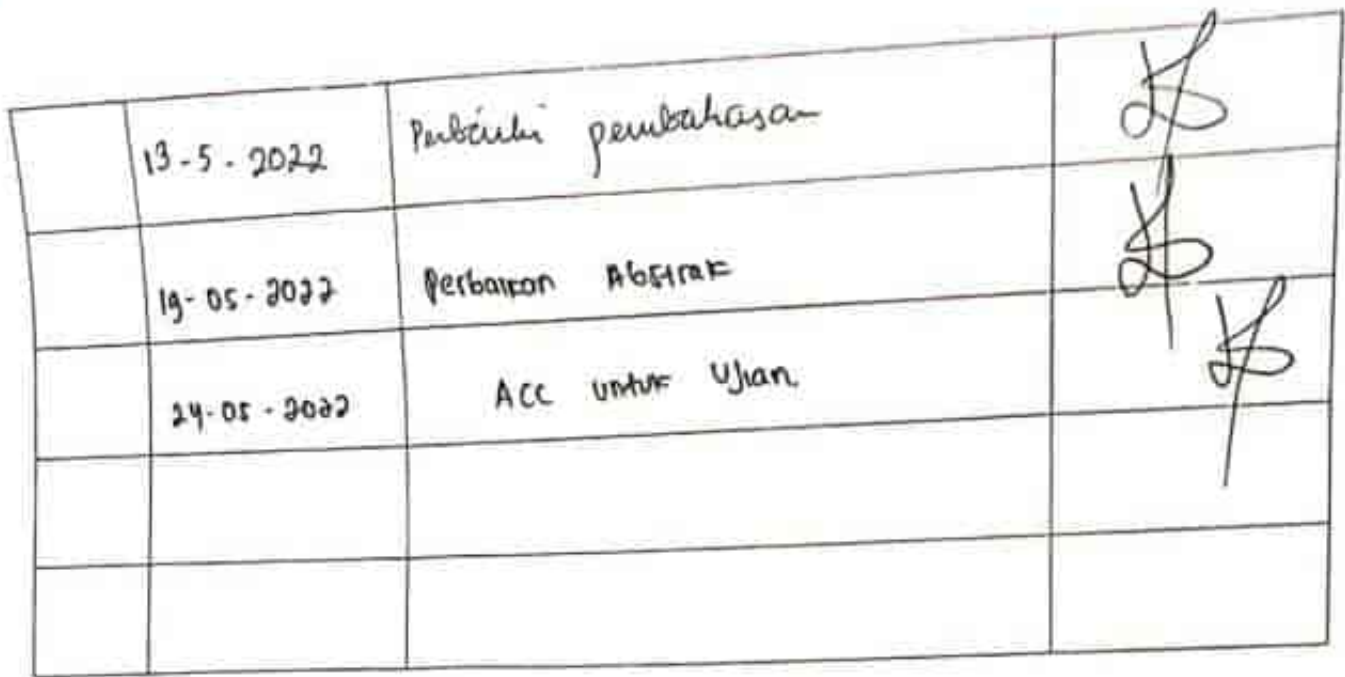 13-5-2022 Perbaiki pembahasan
19-05-2022 Perbaikan Abstrak
24-05-2022 Acc untuk Ujian